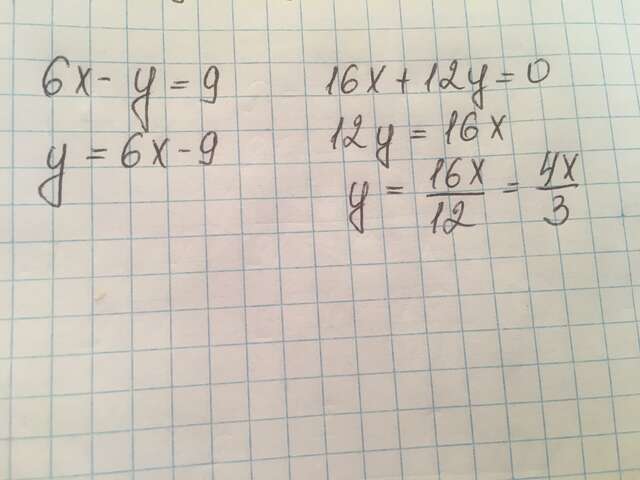 6x - y = 9
y = 6x - 9
16x + 12y = 0
12y = 16x
y = 16x/12 = 4x/3